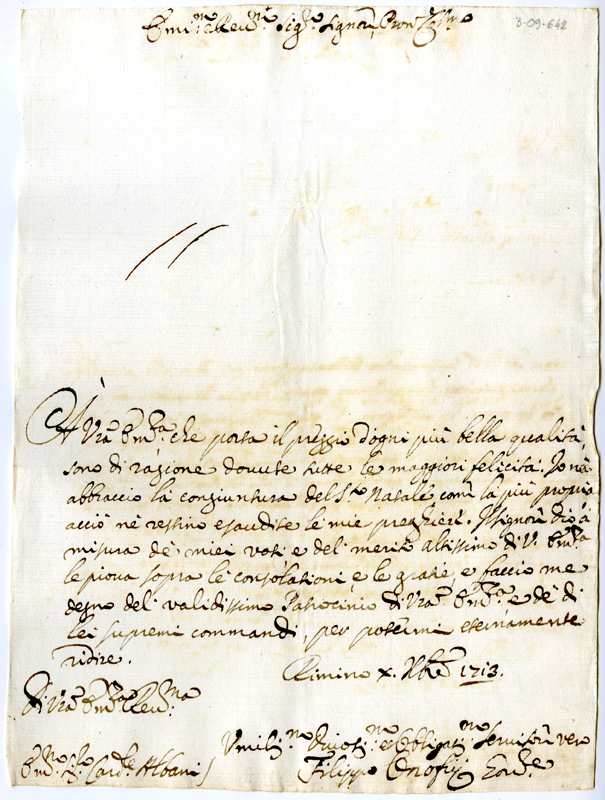 3-09-642
Emin.mo e Rev.mo Sig.r Signore, Pron. Col.mo
À Vra Em.za che porta il preggio d'ogni più bella qualità,
sono di ragione dovute tutte le maggiori felicità. Io ne
abbraccio la congiuntura del S.to Natale com' la più propria
acciò ne restino esaudite le mie preghiere. Il Signore Dio à
misura de miei voti e del merito altissimo di V. Em.za
le piova sopra le consolationi, e le gratie, e faccio me
degno del validissimo Patrocinio di Vra Em.za e de di
lei supremi commandi, per potermi eternamente
ridire.
Rimino x. Xbre 1713.
Di Vra Em.za Rev.ma
Umilis.mo Divotis.mo et Obligatis.mo Servitore vero
Em.mo S.r Card.le Albani
Filippo Onofrij